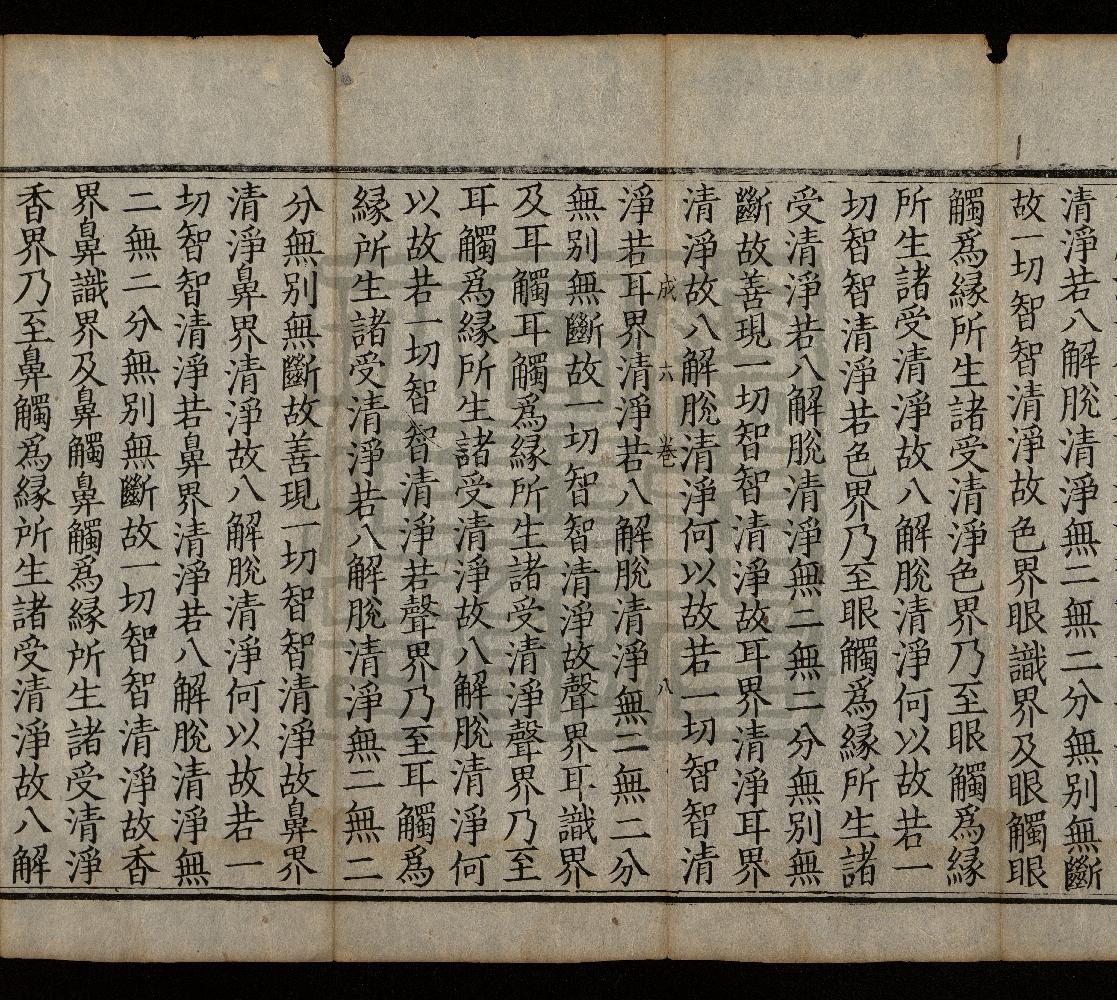 清淨若八解脫清淨無二無二分無別無斷
故一切智智清淨故色界眼識界及眼觸眼
觸爲緣所生諸受清淨色界乃至眼觸爲緣
所生諸受清淨故八解脫清淨何以故若一
切智智清淨若色界乃至眼觸爲緣所生諸
受清淨若八解脫清淨無二無二分無別無
斷故善現一切智智清淨故耳界清淨耳界
清淨故八解脫清淨何以故若一切智智清
成 六 卷 八
淨若耳界清淨若八解脫清淨無二無二分
無別無斷故一切智智清淨故聲界耳識界
及耳觸耳觸爲緣所生諸受清淨聲界乃至
耳觸爲緣所生諸受清淨故八解脫清淨何
以故若一切智智清淨若聲界乃至耳觸爲
緣所生諸受清淨若八解脫清淨無二無二
分無別無斷故善現一切智智清淨故鼻界
清淨鼻界清淨故八解脫清淨何以故若一
切智智清淨若鼻界清淨若八解脫清淨無
二無二分無別無斷故一切智智清淨故香
界鼻識界及鼻觸鼻觸爲緣所生諸受清淨
香界乃至鼻觸爲緣所生諸受清淨故八解